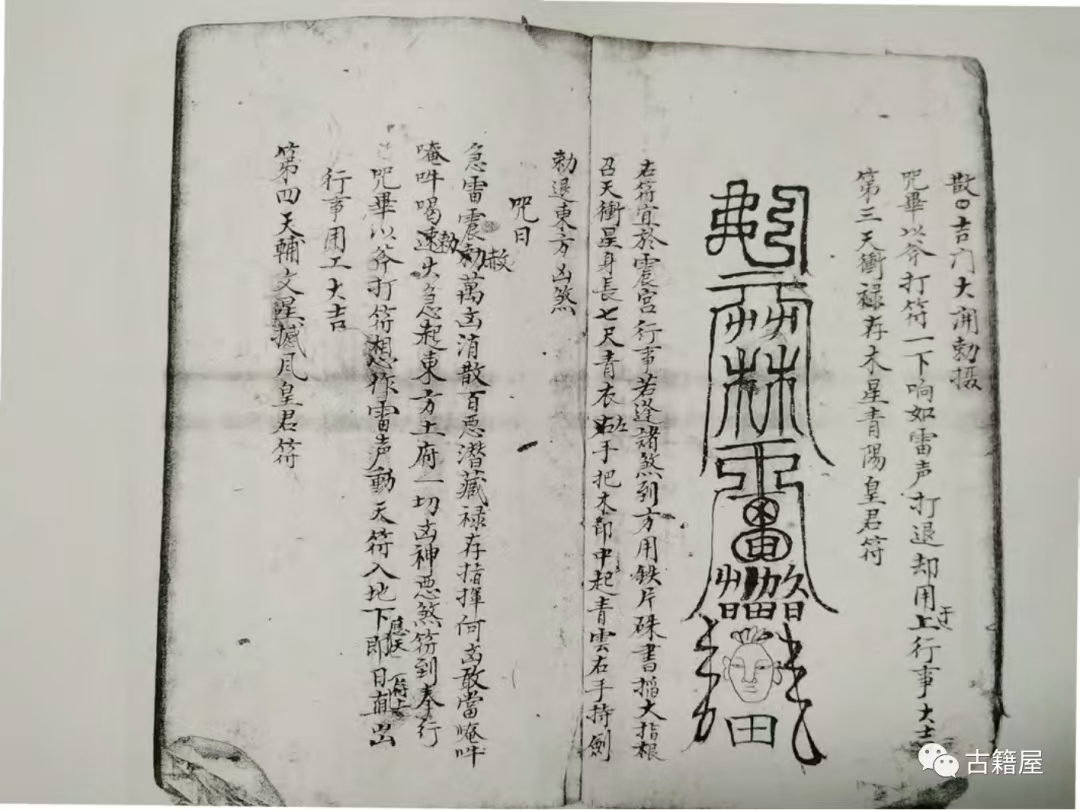 散口吉门大開勅摄
咒畢以斧打符一下响如雷声打退却用上行事大吉
第三天衝禄存木星青陽皇君符
右符宜於震宫行事若逢諸煞到方用鉄片硃書搯大指根
召天衝星身長七尺青衣左手把木印中起青雲右手持劍
勅退東方凶煞
咒曰
急雷震勅萬凶消散百惡潜藏禄存指揮何凶敢當唵吽
唵吽喝速勅赦火急起東方土府一切凶神惡煞符到奉行
咒畢以斧打符想作雷声動天符入地下即日有出
行事用工大吉
第四天輔文星撼凤皇君符
古籍屋